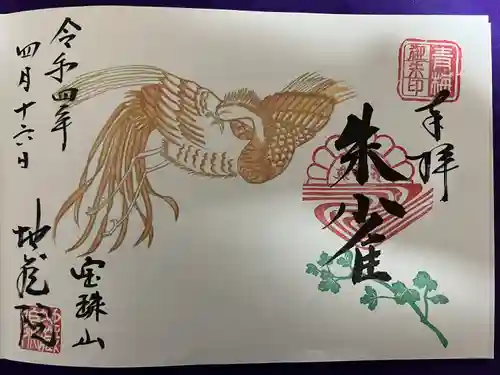 青梅
御朱印
奉拝
朱雀
令和四年
四月十六日
宝珠山
地蔵院